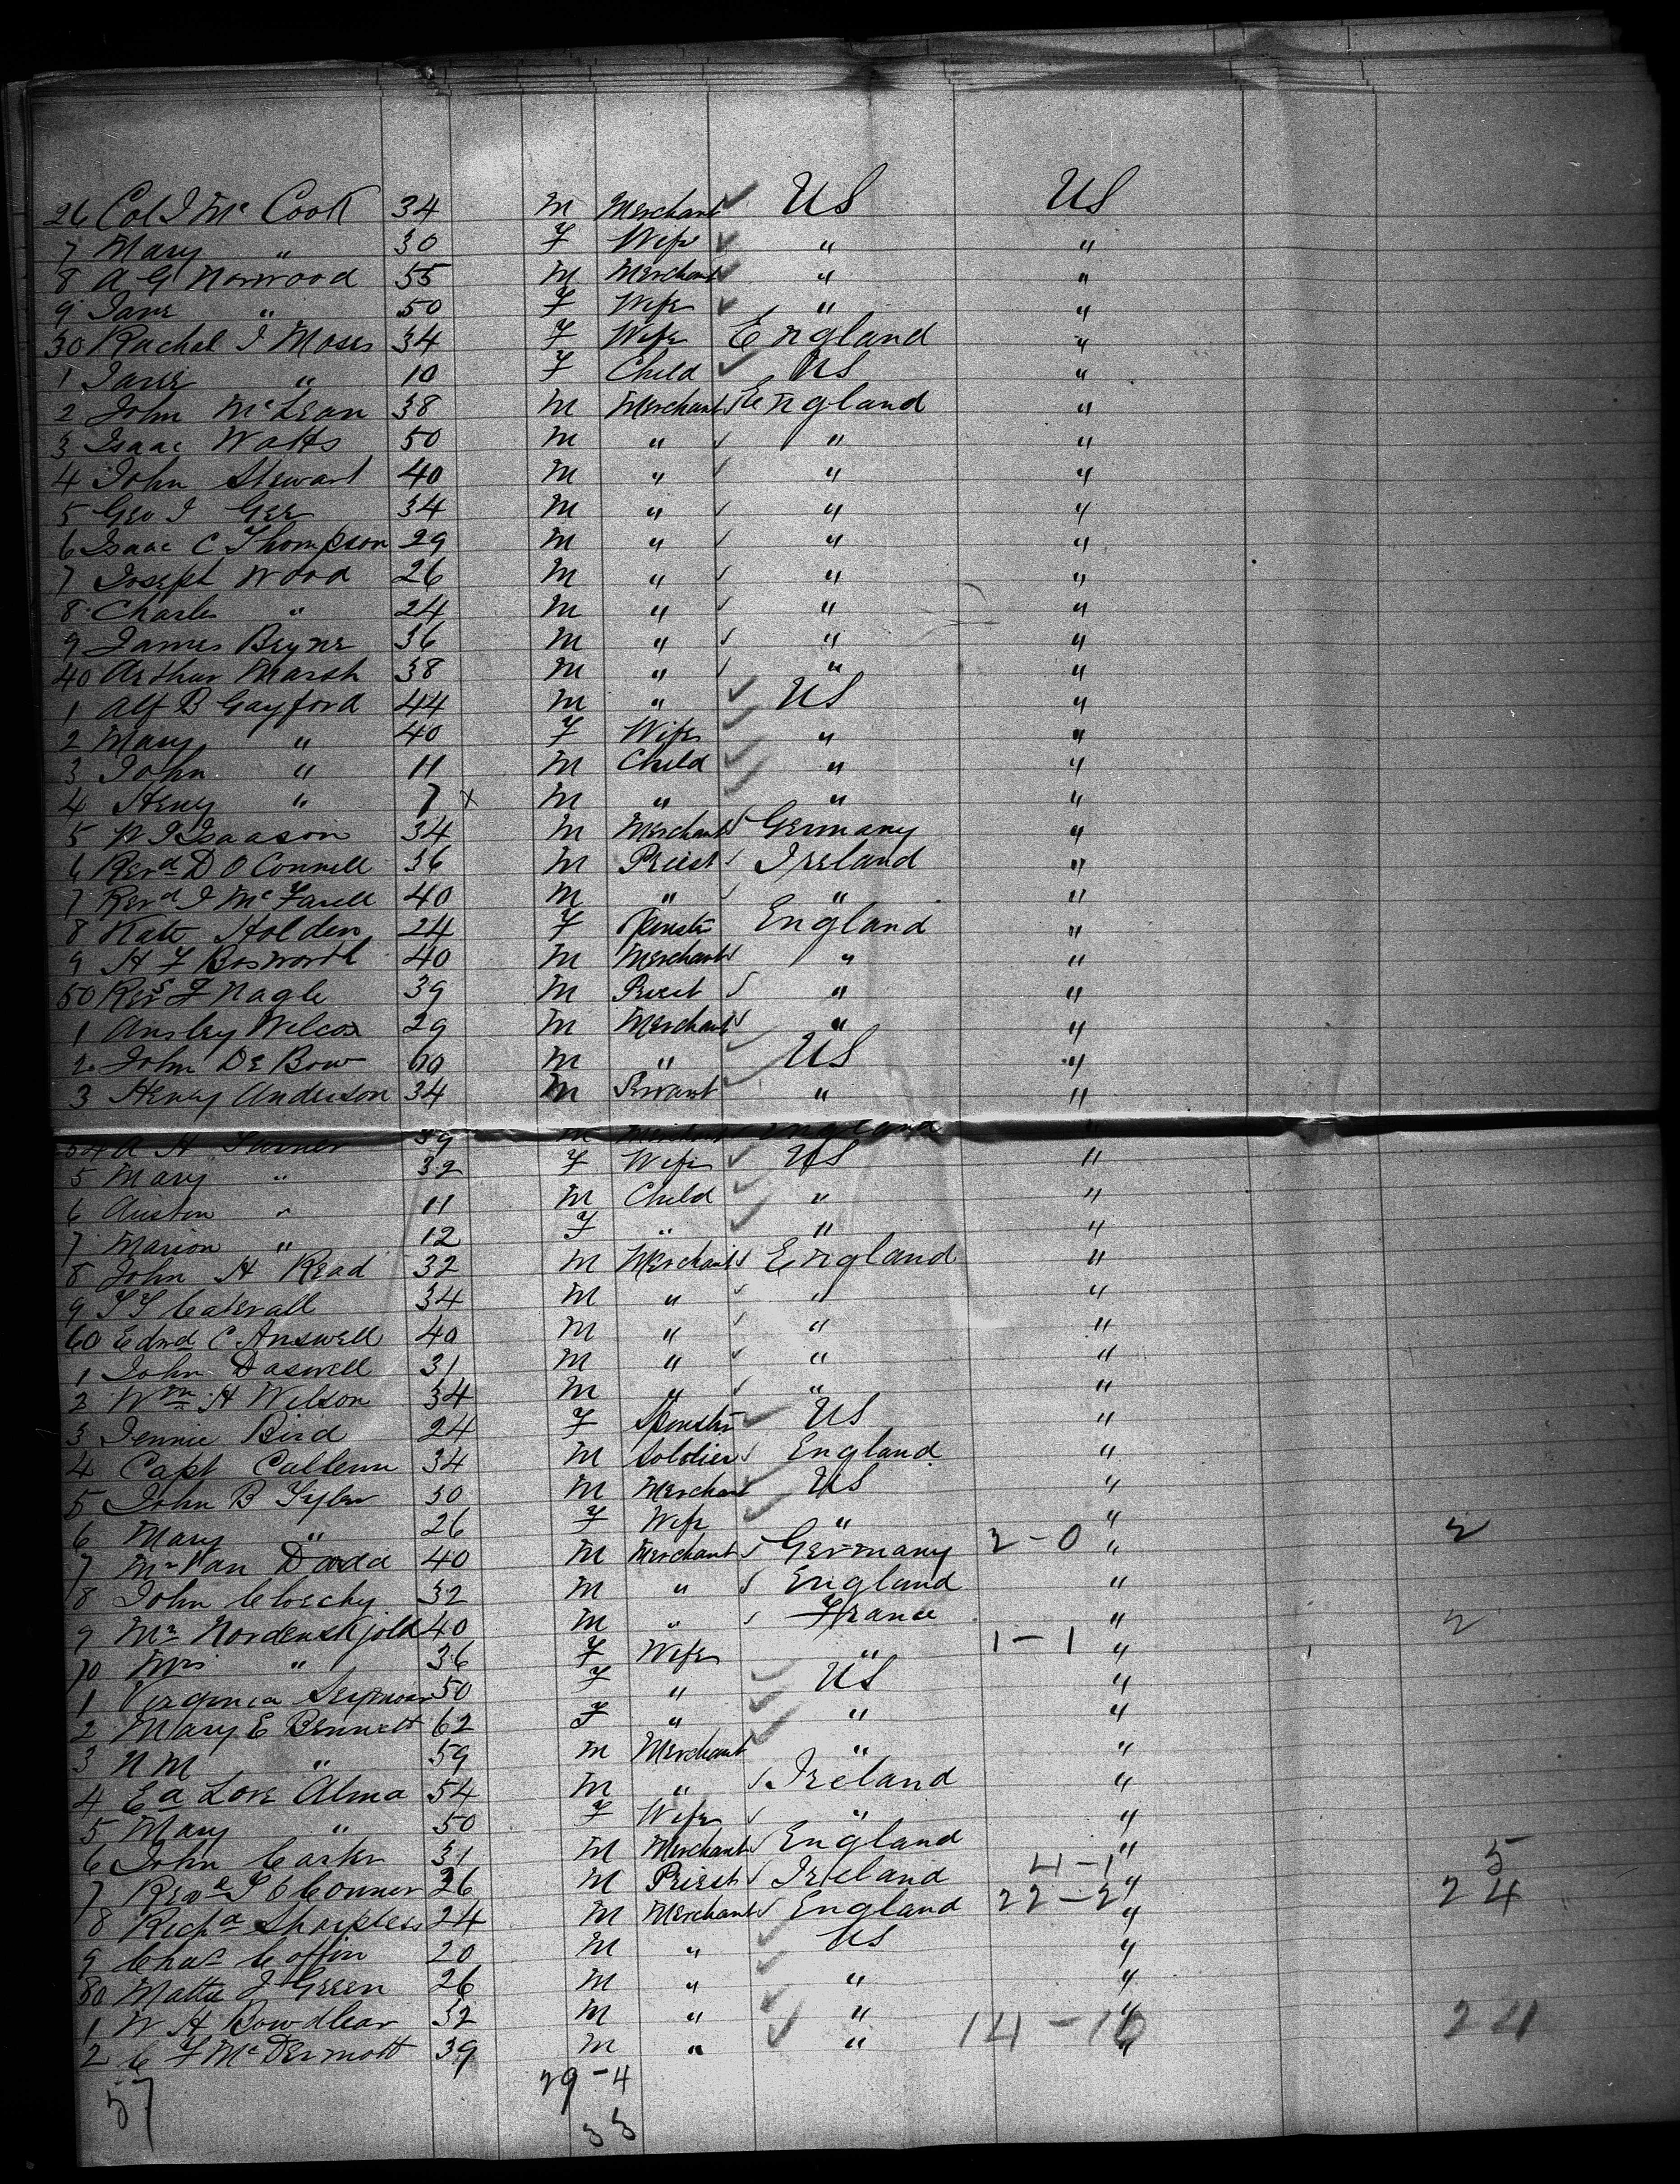 26 Col J Mc Cook 34 M Merchant ✓ US US
7 Mary " 30 F Wife ✓ " "
8 A G Norwood 55 M Merchant ✓ " "
9 Jane " 50 F Wife ✓ " "
30 Rachel J Moses 34 F Wife England "
1 Janie " 10 F Child ✓ US "
2 John McLean 38 M Merchant ✓ England "
3 Isaac Watts 50 M " ✓ " "
4 John Stewart 40 M " ✓ " "
5 Geo J Gee 34 M " ✓ " "
6 Isaac C Thompson 29 M " ✓ " "
7 Joseph Wood 26 M " ✓ " "
8 Charles " 24 M " ✓ " "
9 James Beyne 36 M " ✓ " "
40 Arthur Marsh 38 M " ✓ " "
1 Alf B Gayford 44 M " ✓ US "
2 Mary " 40 F Wife ✓ " "
3 John " 11 M Child ✓ " "
4 Henry " 7 x M " ✓ " "
5 Isaason 34 M Merchant ✓ Germany "
6 Revd D O Connell 36 M Priest ✓ Ireland "
7 Revd J McFarell 40 M " ✓ " "
8 Kate Holden 24 F England "
9 H F Bosworth 40 M Merchant ✓ " "
50 F Nagle 39 M Priest ✓ " "
1 Ansley Wilcox 29 M Merchant ✓ " "
2 John De Bow 60 M " ✓ US "
3 Henry Anderson 34 M Servant ✓ " "
54 A H Turner 39 M Merchant ✓ England "
5 Mary " 32 F Wife ✓ US "
6 Auston " 11 M Child ✓ " "
7 Marion " 12 F " ✓ " "
8 John H Read 32 M Merchant ✓ England "
9 Caterall 34 M " ✓ " "
60 Edwd C Answell 40 M " ✓ " "
1 John Daswell 31 M " ✓ " "
2 Wm H Wilson 34 M " ✓ " "
3 Jennie Bird 24 F Spinster ✓ US "
4 Capt Callenn 34 M Soldier ✓ England "
5 John B Tyler 30 M Merchant ✓ US "
6 Mary " 26 F Wife ✓ " "
7 Mr Van Dadd 40 M Merchant ✓ Germany 2 - 0 " 2
8 John 32 M " ✓ England "
9 Mr Nordenskjold 40 M " ✓ France " 2
70 Mrs " 36 F Wife " 1 - 1 "
1 Virginia Seymour 50 F " ✓ US "
2 Mary E Bennett 62 F " ✓ " "
3 N M " 59 M Merchant ✓ " "
4 Ed Love Alma 54 M " ✓ Ireland "
5 Mary " 50 F Wife ✓ " "
6 John Carter 31 M Merchant ✓ England "
7 Revd O Connor 26 M Priest ✓ Ireland 4 - 1 " 5
8 Richd Sharpless 24 M Merchant ✓ England 22 - 2 " 24
9 Chas Coffin 20 M " ✓ US "
80 Mattie J Green 26 M " ✓ " "
1 W H Bowdlear 32 M " ✓ " "
2 C F McDermott 39 M " ✓ " 14 - 10 " 24
57 29 - 4
33